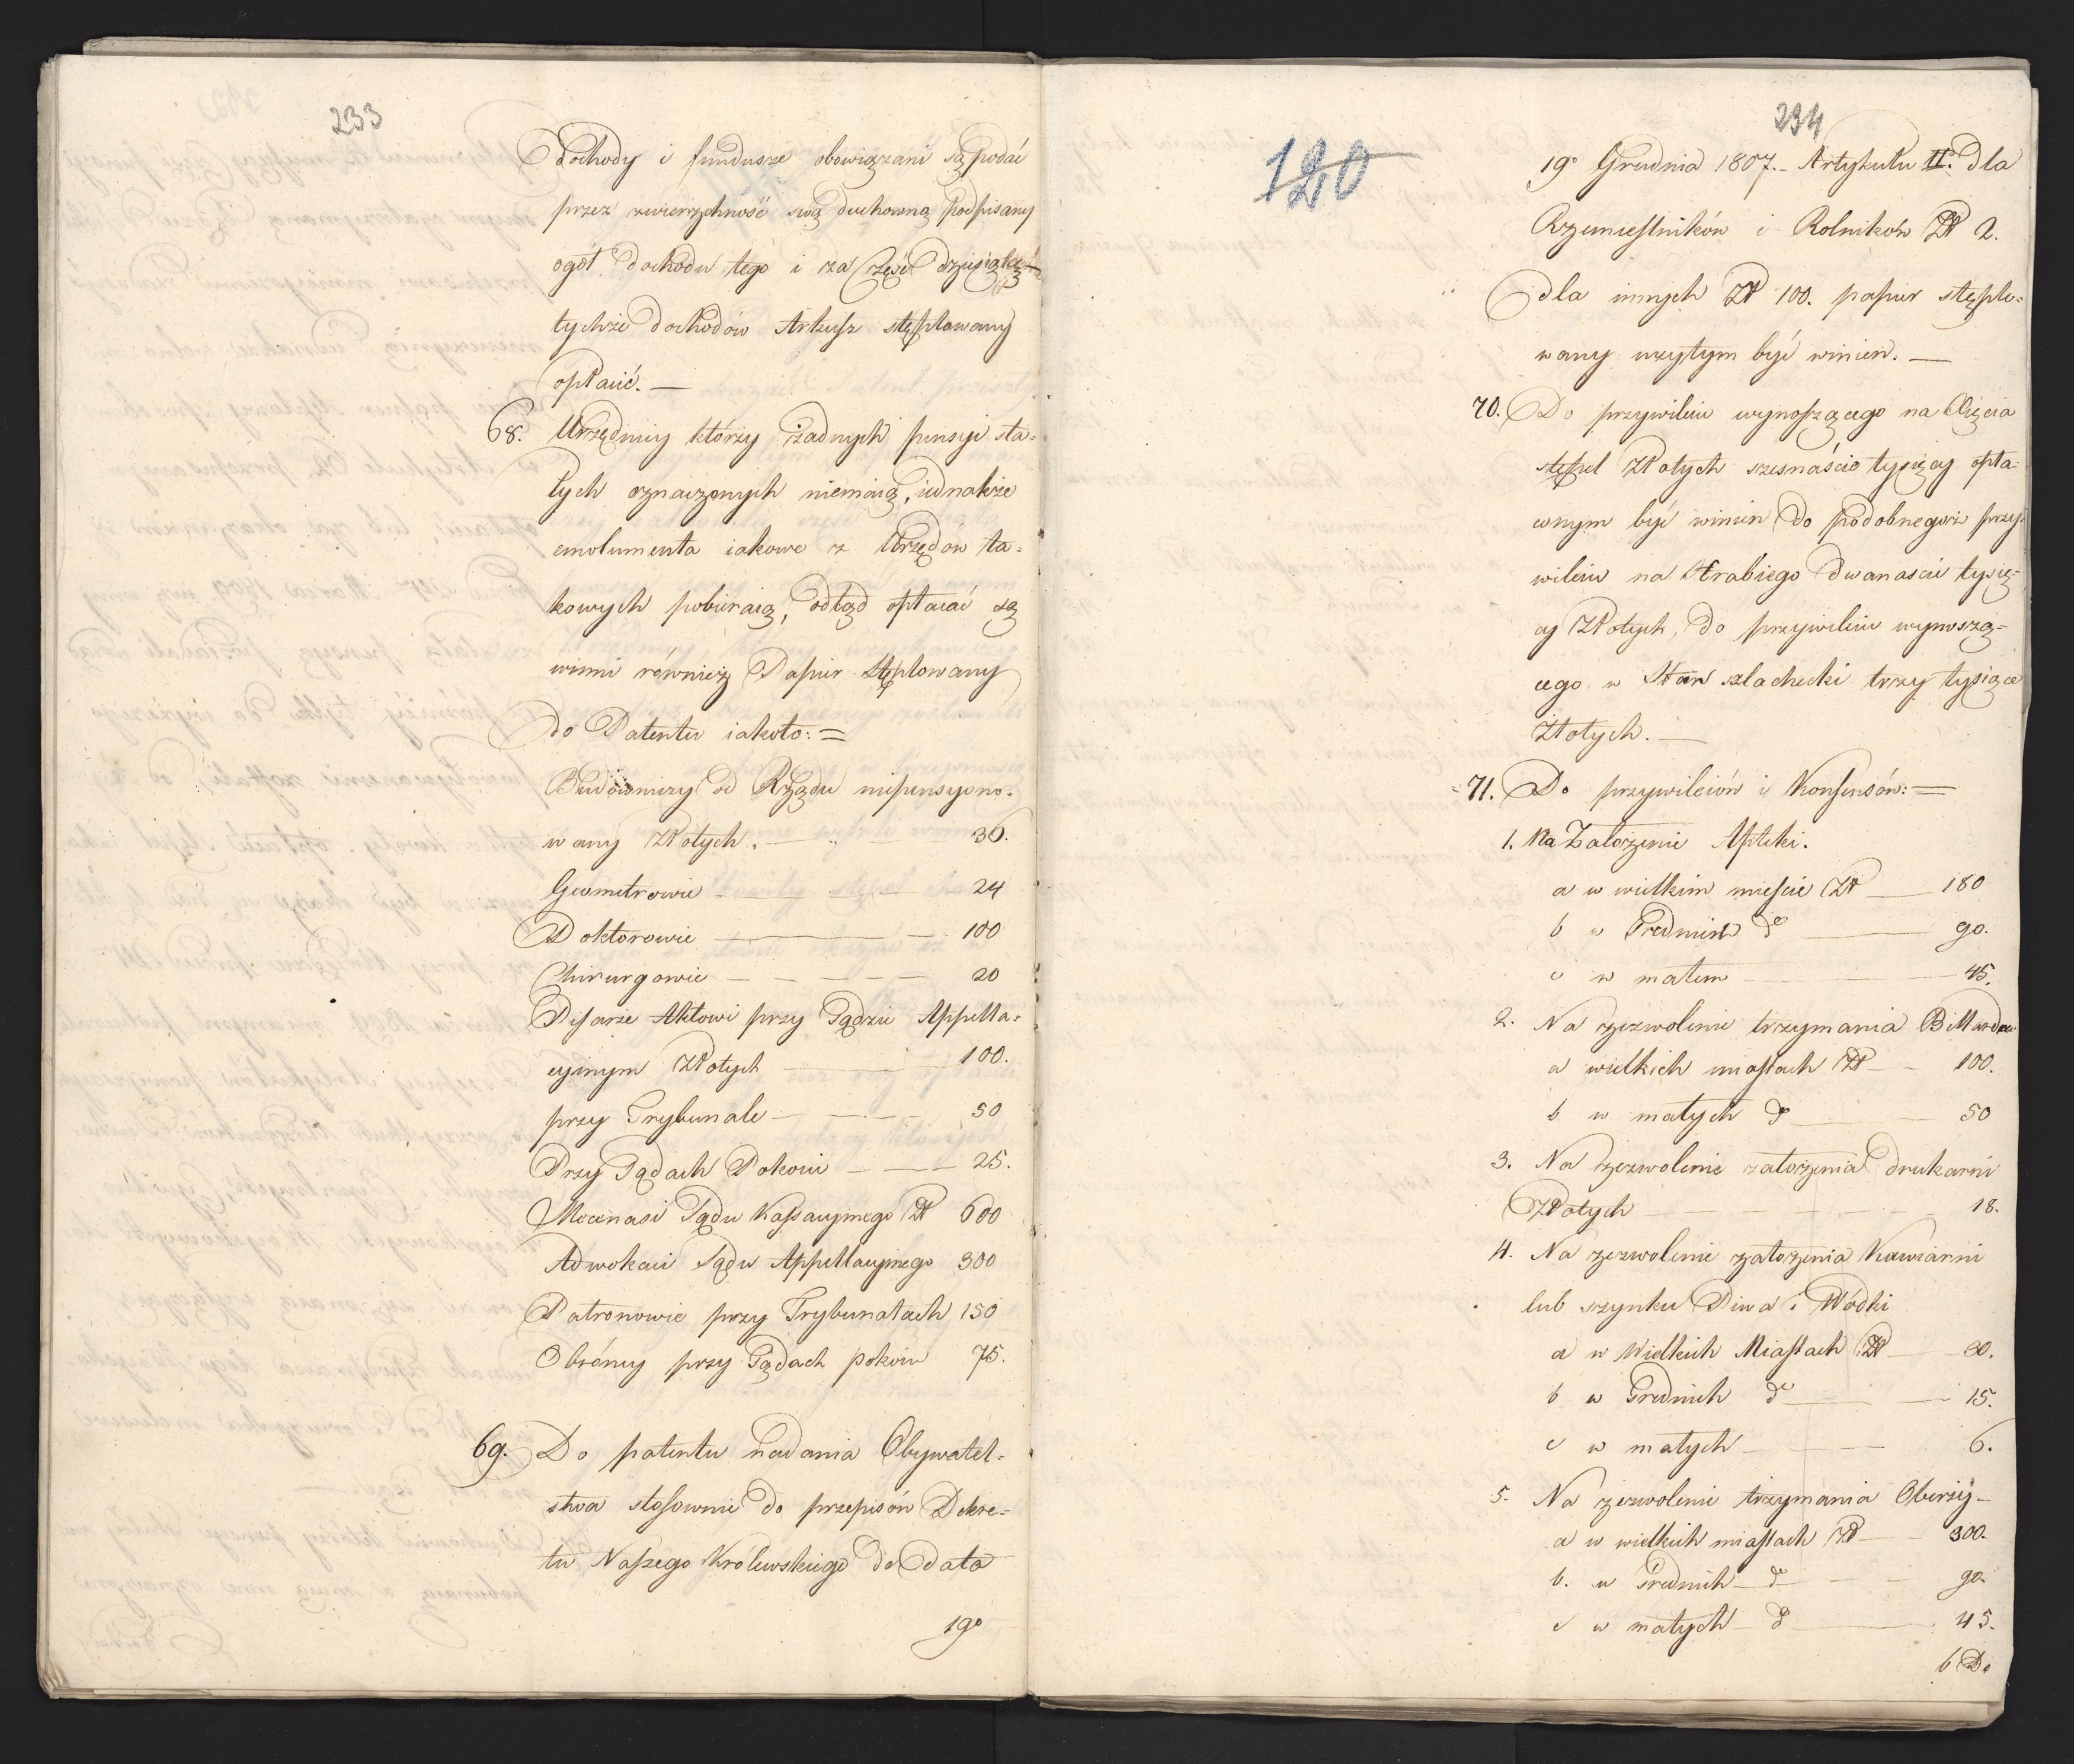 233
Dochody i fundusze obowiązani są podać
przez zwierzchność swą duchowną podpisany
ogół dochodu tego i za część dziesiątą
tychże dochodów Arkusz stęplowany
opłacić. —
68. Urzędnicy którzy żadnych pensyi sta=
łych oznaczonych niemaią, iednakże
emolumenta iakowe z Urzędów ta=
kowych pobieraią, odtąd opłacać są
winni również Papier stęplowany
do Patentu iakoto: =
Budowniczy od Rządu niepensyono=
wany Złotych. — " — 36.
Geometrowie — — — 24
Doktorowie — — 100
Chirurgowie — — — — — 20
Pisarze Aktowi przy Sądzie Appella=
cyinym Złotych — — 100.
przy Trybunale — — — 50
Przy Sądach Pokoiu — — — 25.
Mecenasi Sądu Kassacyinego Zł 600
Adwokaci Sądu Appellacyinego 300
Patronowie przy Trybunałach 150
Obrońcy przy Sądach pokoiu 75.
69. Do patentu nadania Obywatel=
stwa stosownie do przepisów Dekre=
tu Naszego Królewskiego de dato
19º
234
120
19º Grudnia 1807. – Artykułu IIº. dla
Rzemieślników i Rolników Zł 2.
dla innych Zł 100. papier stęplo=
wany użytym być winien. —
70. Do przywileiu wynoszącego na Xięcia
stępel Złotych szesnaście tysięcy opła=
conym być winien do podobnegoż przy=
wileiu na Hrabiego dwanaście tysię=
cy Złotych, do przywileiu wynoszą=
cego w Stan szlachecki trzy tysiące
Złotych. —
71. Do przywileiów i Konsensów: =
1. Na Założenie Apteki.
a w wielkim mieście Zł — 180
b w Srednim dº — 90.
c w małem — 45.
2. Na zezwolenie trzymania Billardu
a wielkich miastach Zł — — 100.
b w małych dº — 50
3. Na zezwolenie założenia drukarni
Złotych — — — — — 18.
4. Na zezwolenie założenia Kawiarni
lub szynku Piwa i Wódki
a w Wielkich Miastach Zł — 30.
b w Srednich dº — — 15.
c w małych — — — 6.
5. Na zezwolenie trzymania Oberży –
a w wielkich miastach Zł — 300.
b. w średnich — dº — — 90
c w małych — dº — 45.
6 Do